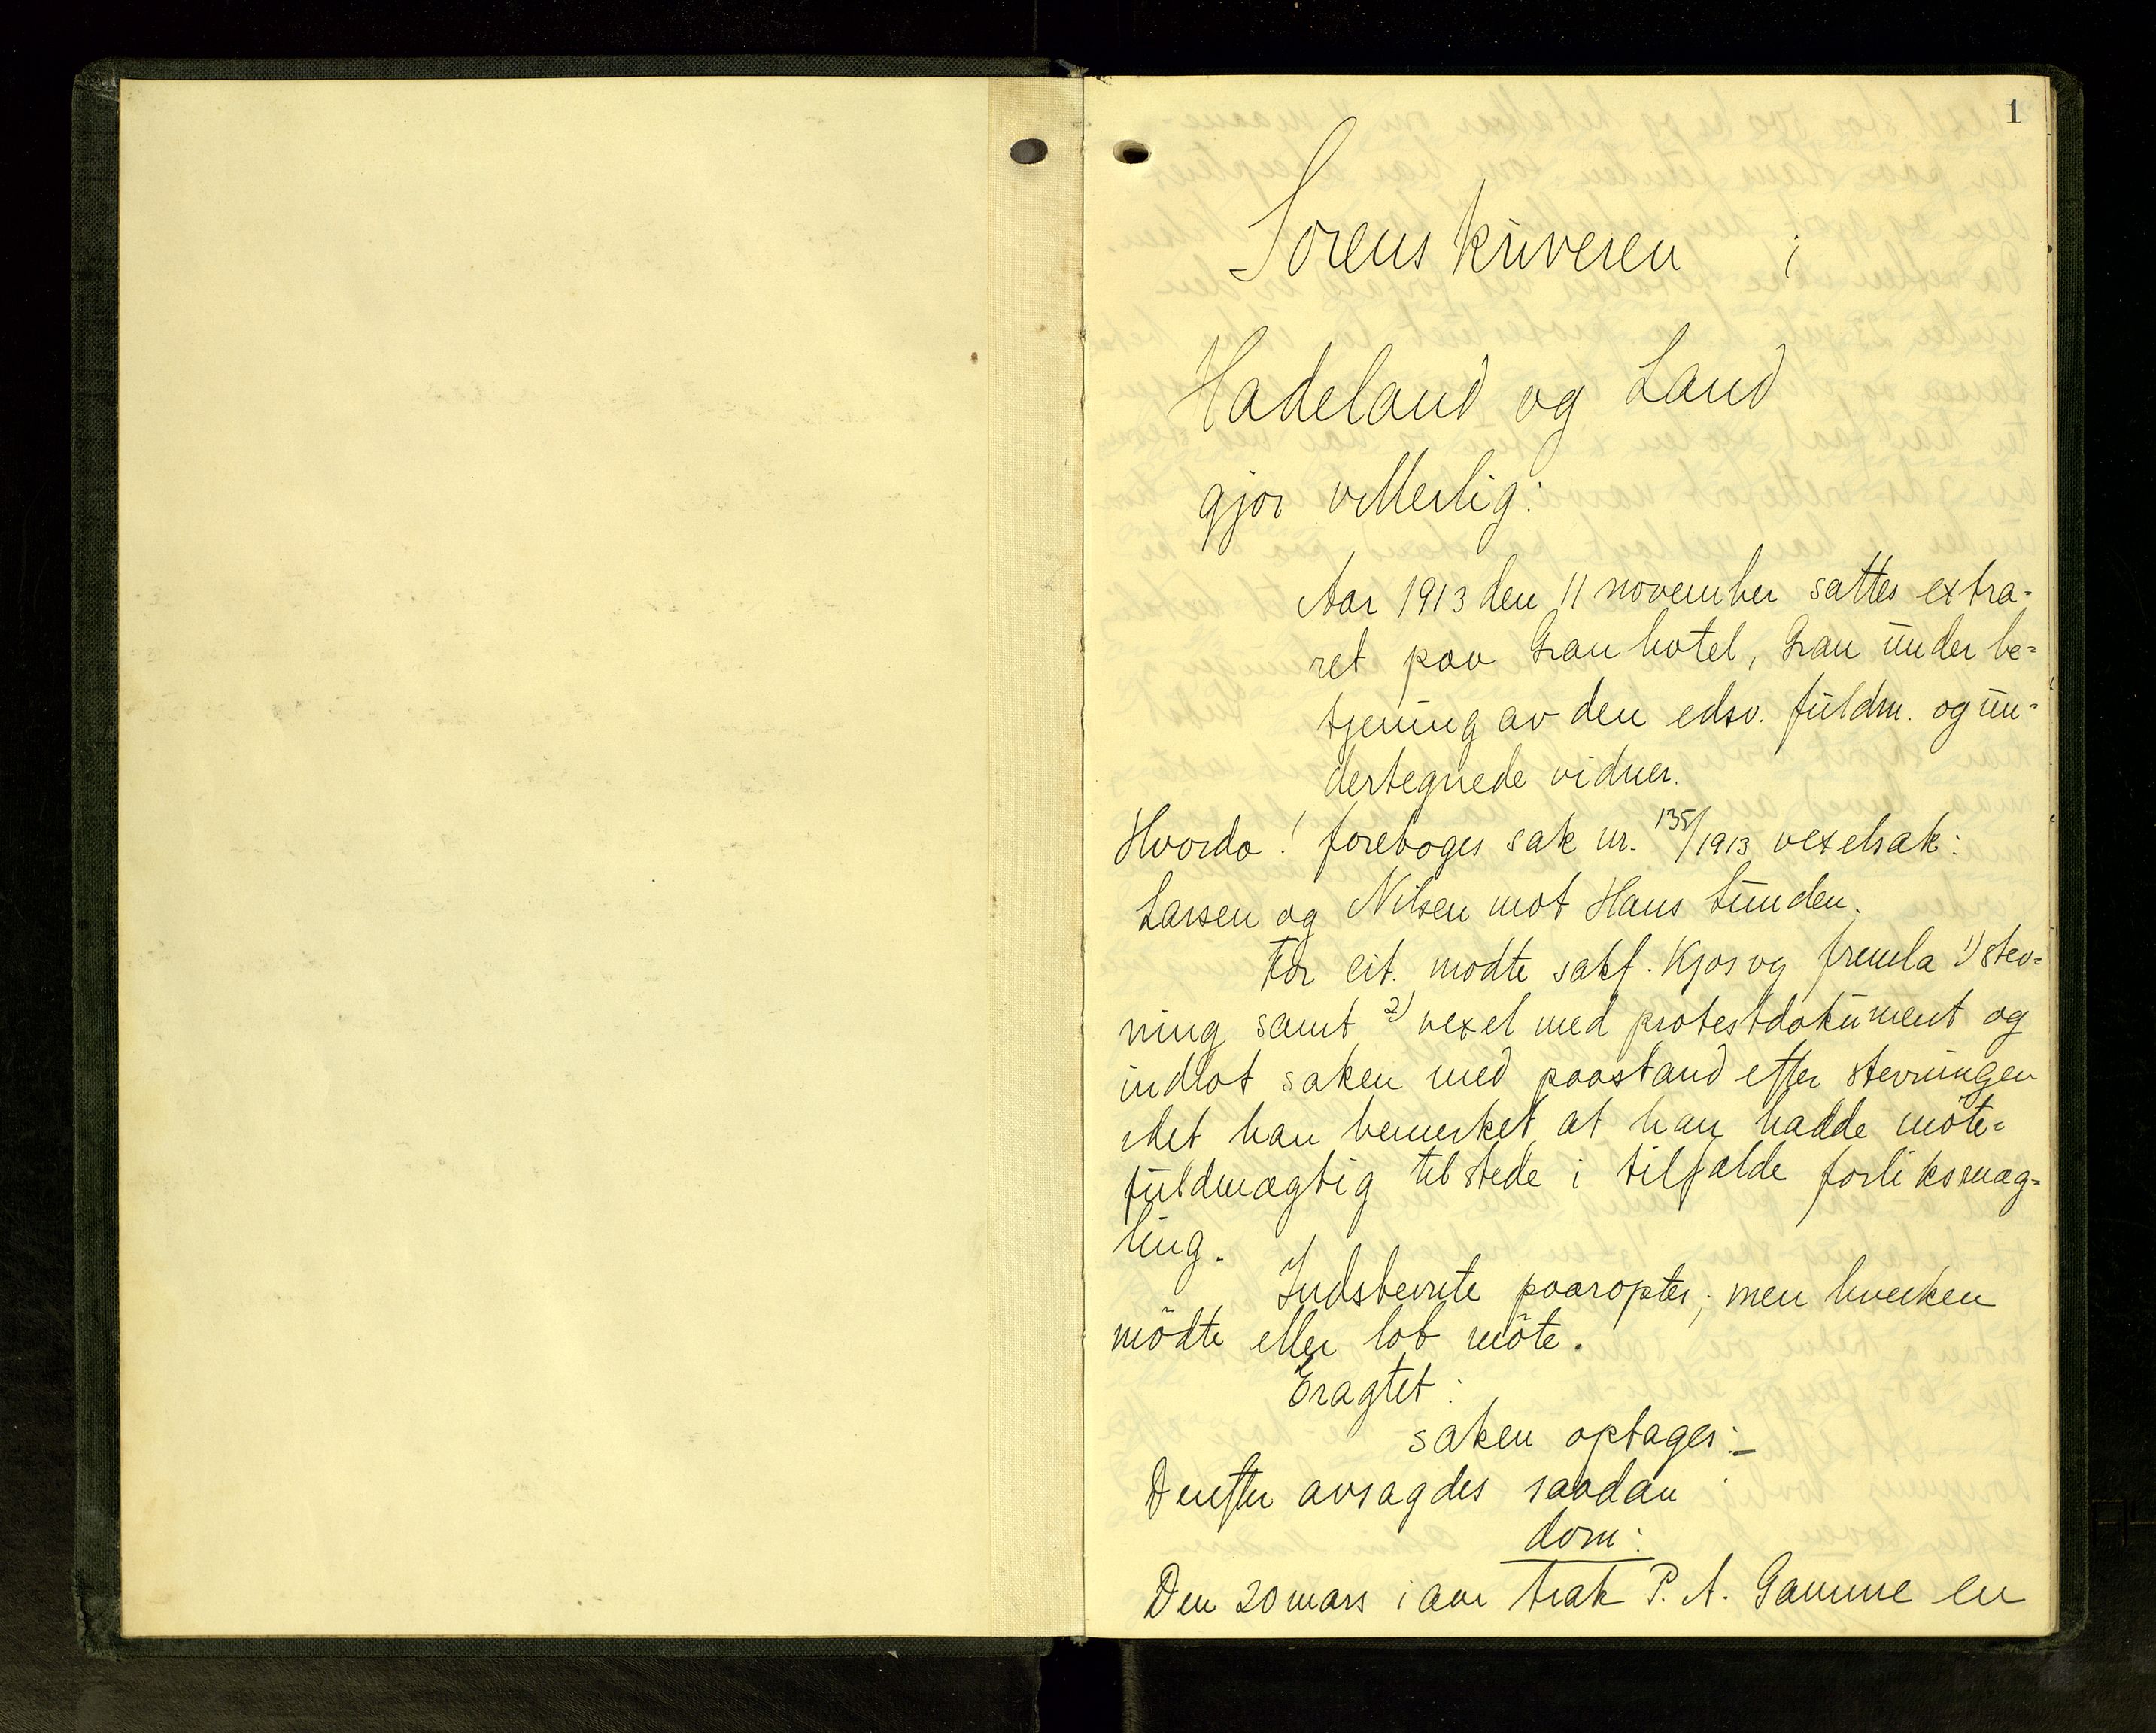 1
Sorenskriveren i
Hadeland og Land
gjør vitterlig:
Aar 1913 den 11 november sattes extra-
ret paa Gran hotel, Gran under be-
tjening av den edsv. fuldm. og un-
dertegnede vidner.
Hvorda! foretoges sak nr. 135/1913 vexelsak:
Larsen og Nilsen mot Hans Lunden.
For cit. mødte sakf. Kjos og fremla 1) stev-
ning samt 2) vexel med protestdokument og
indlot saken med paastand efter stevningen
idet han bemerket at han hadde møte-
fuldmægtig tilstede i tilfælde forliksmæg-
ling.
Indstevnte paaroptes, men hverken
mødte eller lot møte.
Eragtet:
saken optages:-
Derefter avsagdes saadan
dom:
Den 20 mars i aar trak P. A. Gamme en